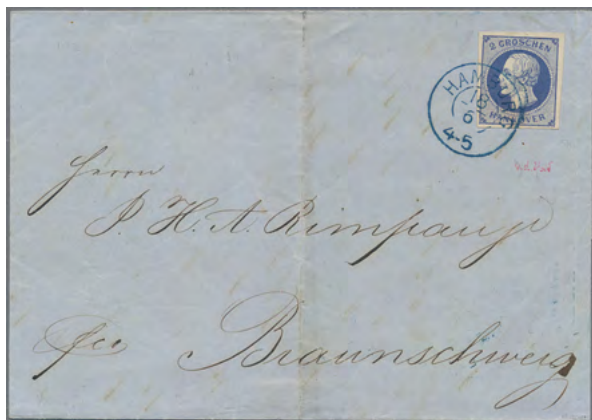 2 GROSCHEN
HANNOVER
HAMBURG
18
6
4-5
Herrn
P. H. A. Rimpau
Braunschweig